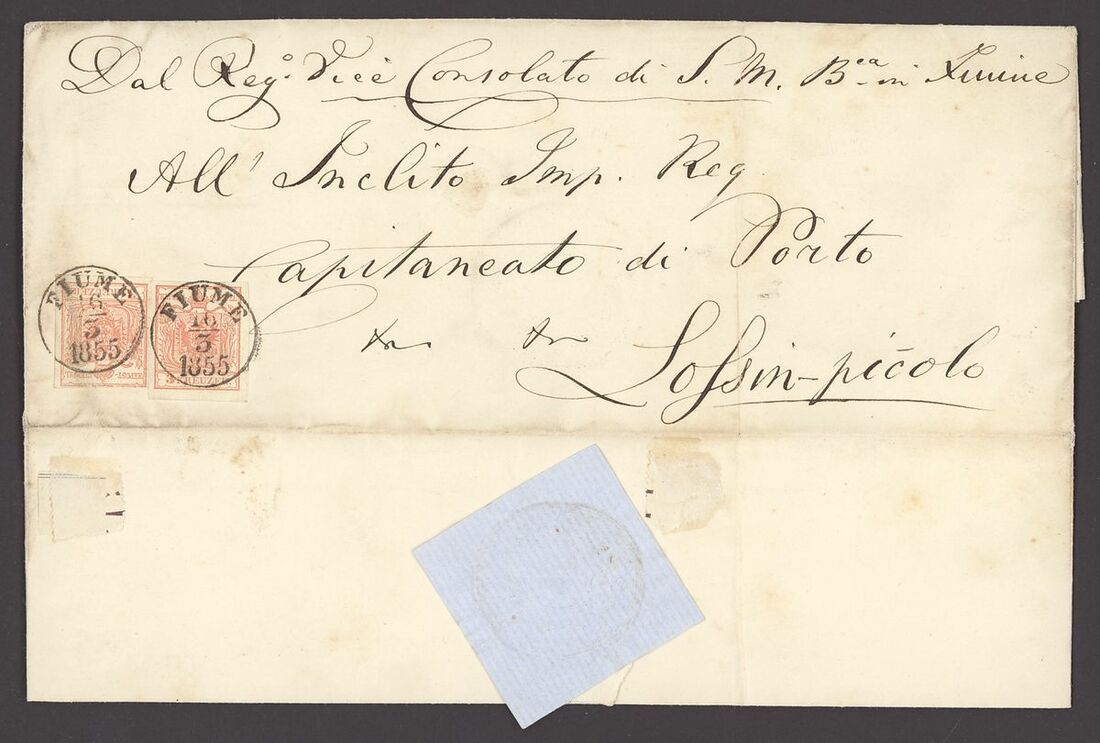 Dal Reg.º Vice Consolato di S. M. B.ca in Fiume
All' Inclito Imp. Reg.
Capitaneato di Porto
Lossin-piccolo
FIUME
16
3
1855
FIUME
16
3
1855
3 KREUZER